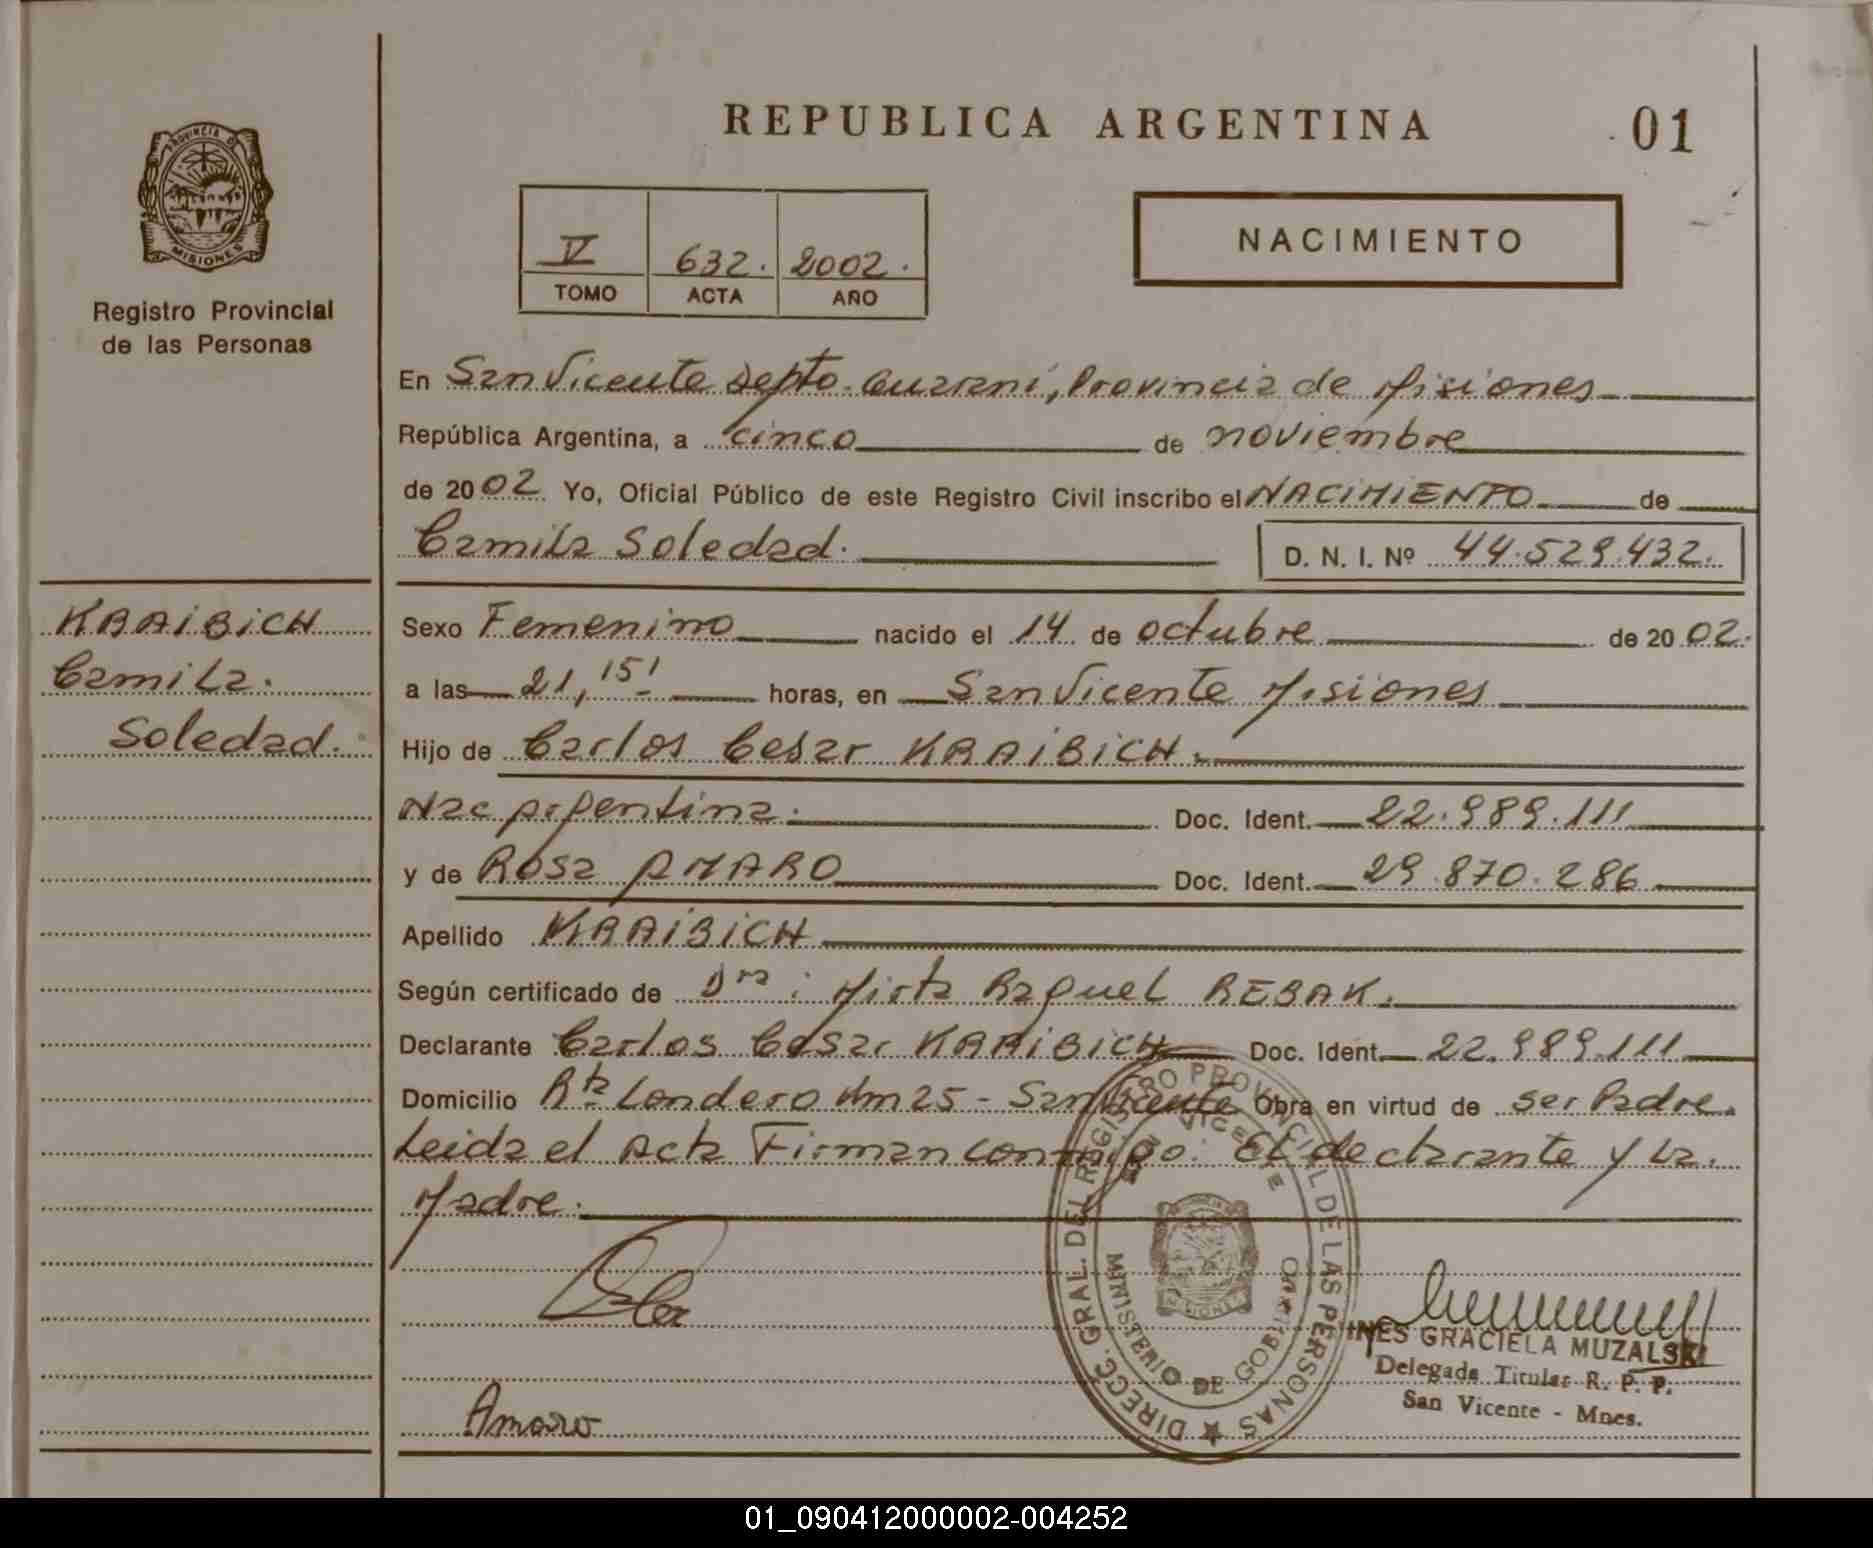 REPUBLICA ARGENTINA
01
PROVINCIA D
MISIONES
Registro Provincial
de las Personas
IV 632. 2002.
TOMO ACTA AÑO
NACIMIENTO
En San Vicente Depto. Guarani, Provincia de Misiones
República Argentina, a cinco de noviembre
de 2002. Yo, Oficial Público de este Registro Civil inscribo el NACIMIENTO de
Camila Soledad.
D. N. I. Nº 44.529.432.
KRAIBICH
Camila.
Soledad.
Sexo Femenino nacido el 14 de octubre de 2002.
a las 21,15' horas, en San Vicente Misiones
Hijo de Carlos Cesar KRAIBICH.
Nac Argentina. Doc. Ident. 22.989.111
y de Rosa AMARO Doc. Ident. 29.870.286
Apellido KRAIBICH
Según certificado de Dra: Mirta Raquel REBAK.
Declarante Carlos Cesar KRAIBICH Doc. Ident. 22.989.111
Domicilio Rta Londero Km 25 - San Vicente Obra en virtud de ser Padre.
Leida el Acta Firman conmigo: El declarante y La.
Madre.
DIRECC. GRAL. DEL REGISTRO PROVINCIAL DE LAS PERSONAS
SAN VICENTE
MISIONES
MINISTERIO DE GOBIERNO
INES GRACIELA MUZALSKI
Delegada Titular R. P. P.
San Vicente - Mnes.
Amaro
01_090412000002-004252